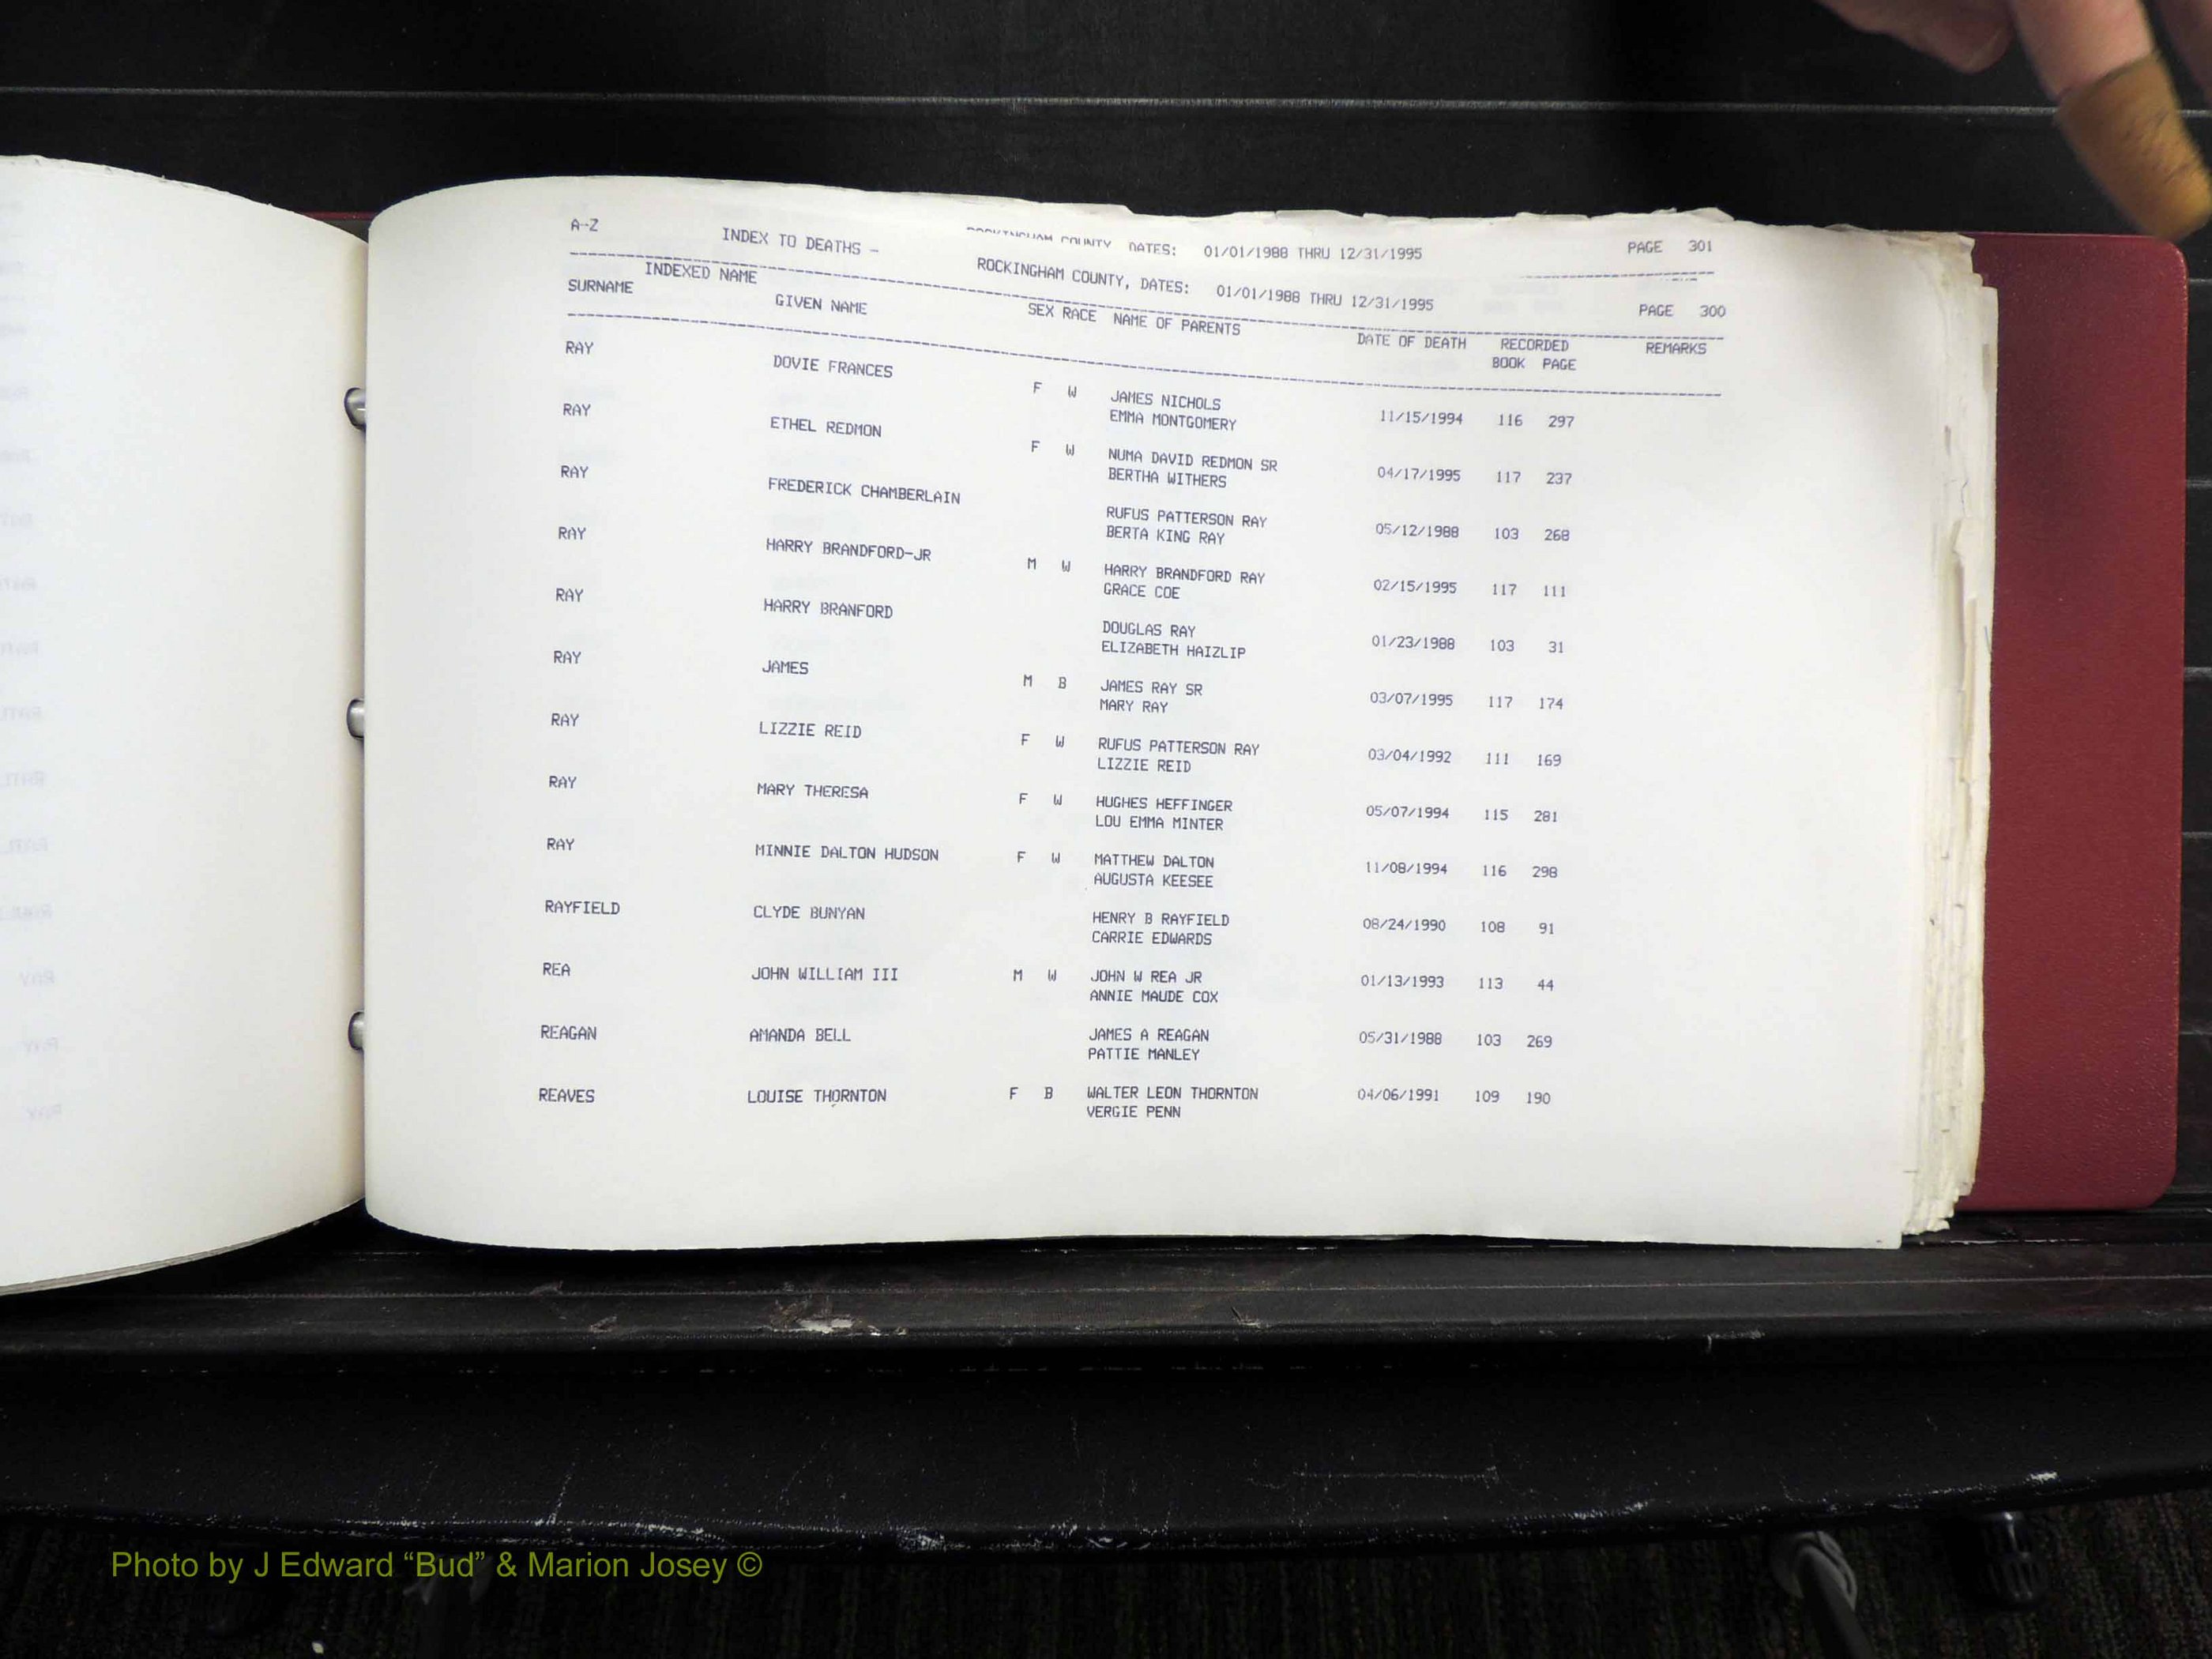 A-Z INDEX TO DEATHS - ROCKINGHAM COUNTY DATES: 01/01/1988 THRU 12/31/1995 PAGE 301
ROCKINGHAM COUNTY, DATES: 01/01/1988 THRU 12/31/1995 PAGE 300
INDEXED NAME
SURNAME GIVEN NAME SEX RACE NAME OF PARENTS DATE OF DEATH RECORDED REMARKS
BOOK PAGE
RAY DOVIE FRANCES F W JAMES NICHOLS 11/15/1994 116 297
EMMA MONTGOMERY
RAY ETHEL REDMON F W NUMA DAVID REDMON SR 04/17/1995 117 237
BERTHA WITHERS
RAY FREDERICK CHAMBERLAIN RUFUS PATTERSON RAY 05/12/1988 103 268
BERTA KING RAY
RAY HARRY BRANDFORD-JR M W HARRY BRANDFORD RAY 02/15/1995 117 111
GRACE COE
RAY HARRY BRANFORD DOUGLAS RAY 01/23/1988 103 31
ELIZABETH HAIZLIP
RAY JAMES M B JAMES RAY SR 03/07/1995 117 174
MARY RAY
RAY LIZZIE REID F W RUFUS PATTERSON RAY 03/04/1992 111 169
LIZZIE REID
RAY MARY THERESA F W HUGHES HEFFINGER 05/07/1994 115 281
LOU EMMA MINTER
RAY MINNIE DALTON HUDSON F W MATTHEW DALTON 11/08/1994 116 298
AUGUSTA KEESEE
RAYFIELD CLYDE BUNYAN HENRY B RAYFIELD 08/24/1990 108 91
CARRIE EDWARDS
REA JOHN WILLIAM III M W JOHN W REA JR 01/13/1993 113 44
ANNIE MAUDE COX
REAGAN AMANDA BELL JAMES A REAGAN 05/31/1988 103 269
PATTIE MANLEY
REAVES LOUISE THORNTON F B WALTER LEON THORNTON 04/06/1991 109 190
VERGIE PENN
Photo by J Edward “Bud” & Marion Josey ©